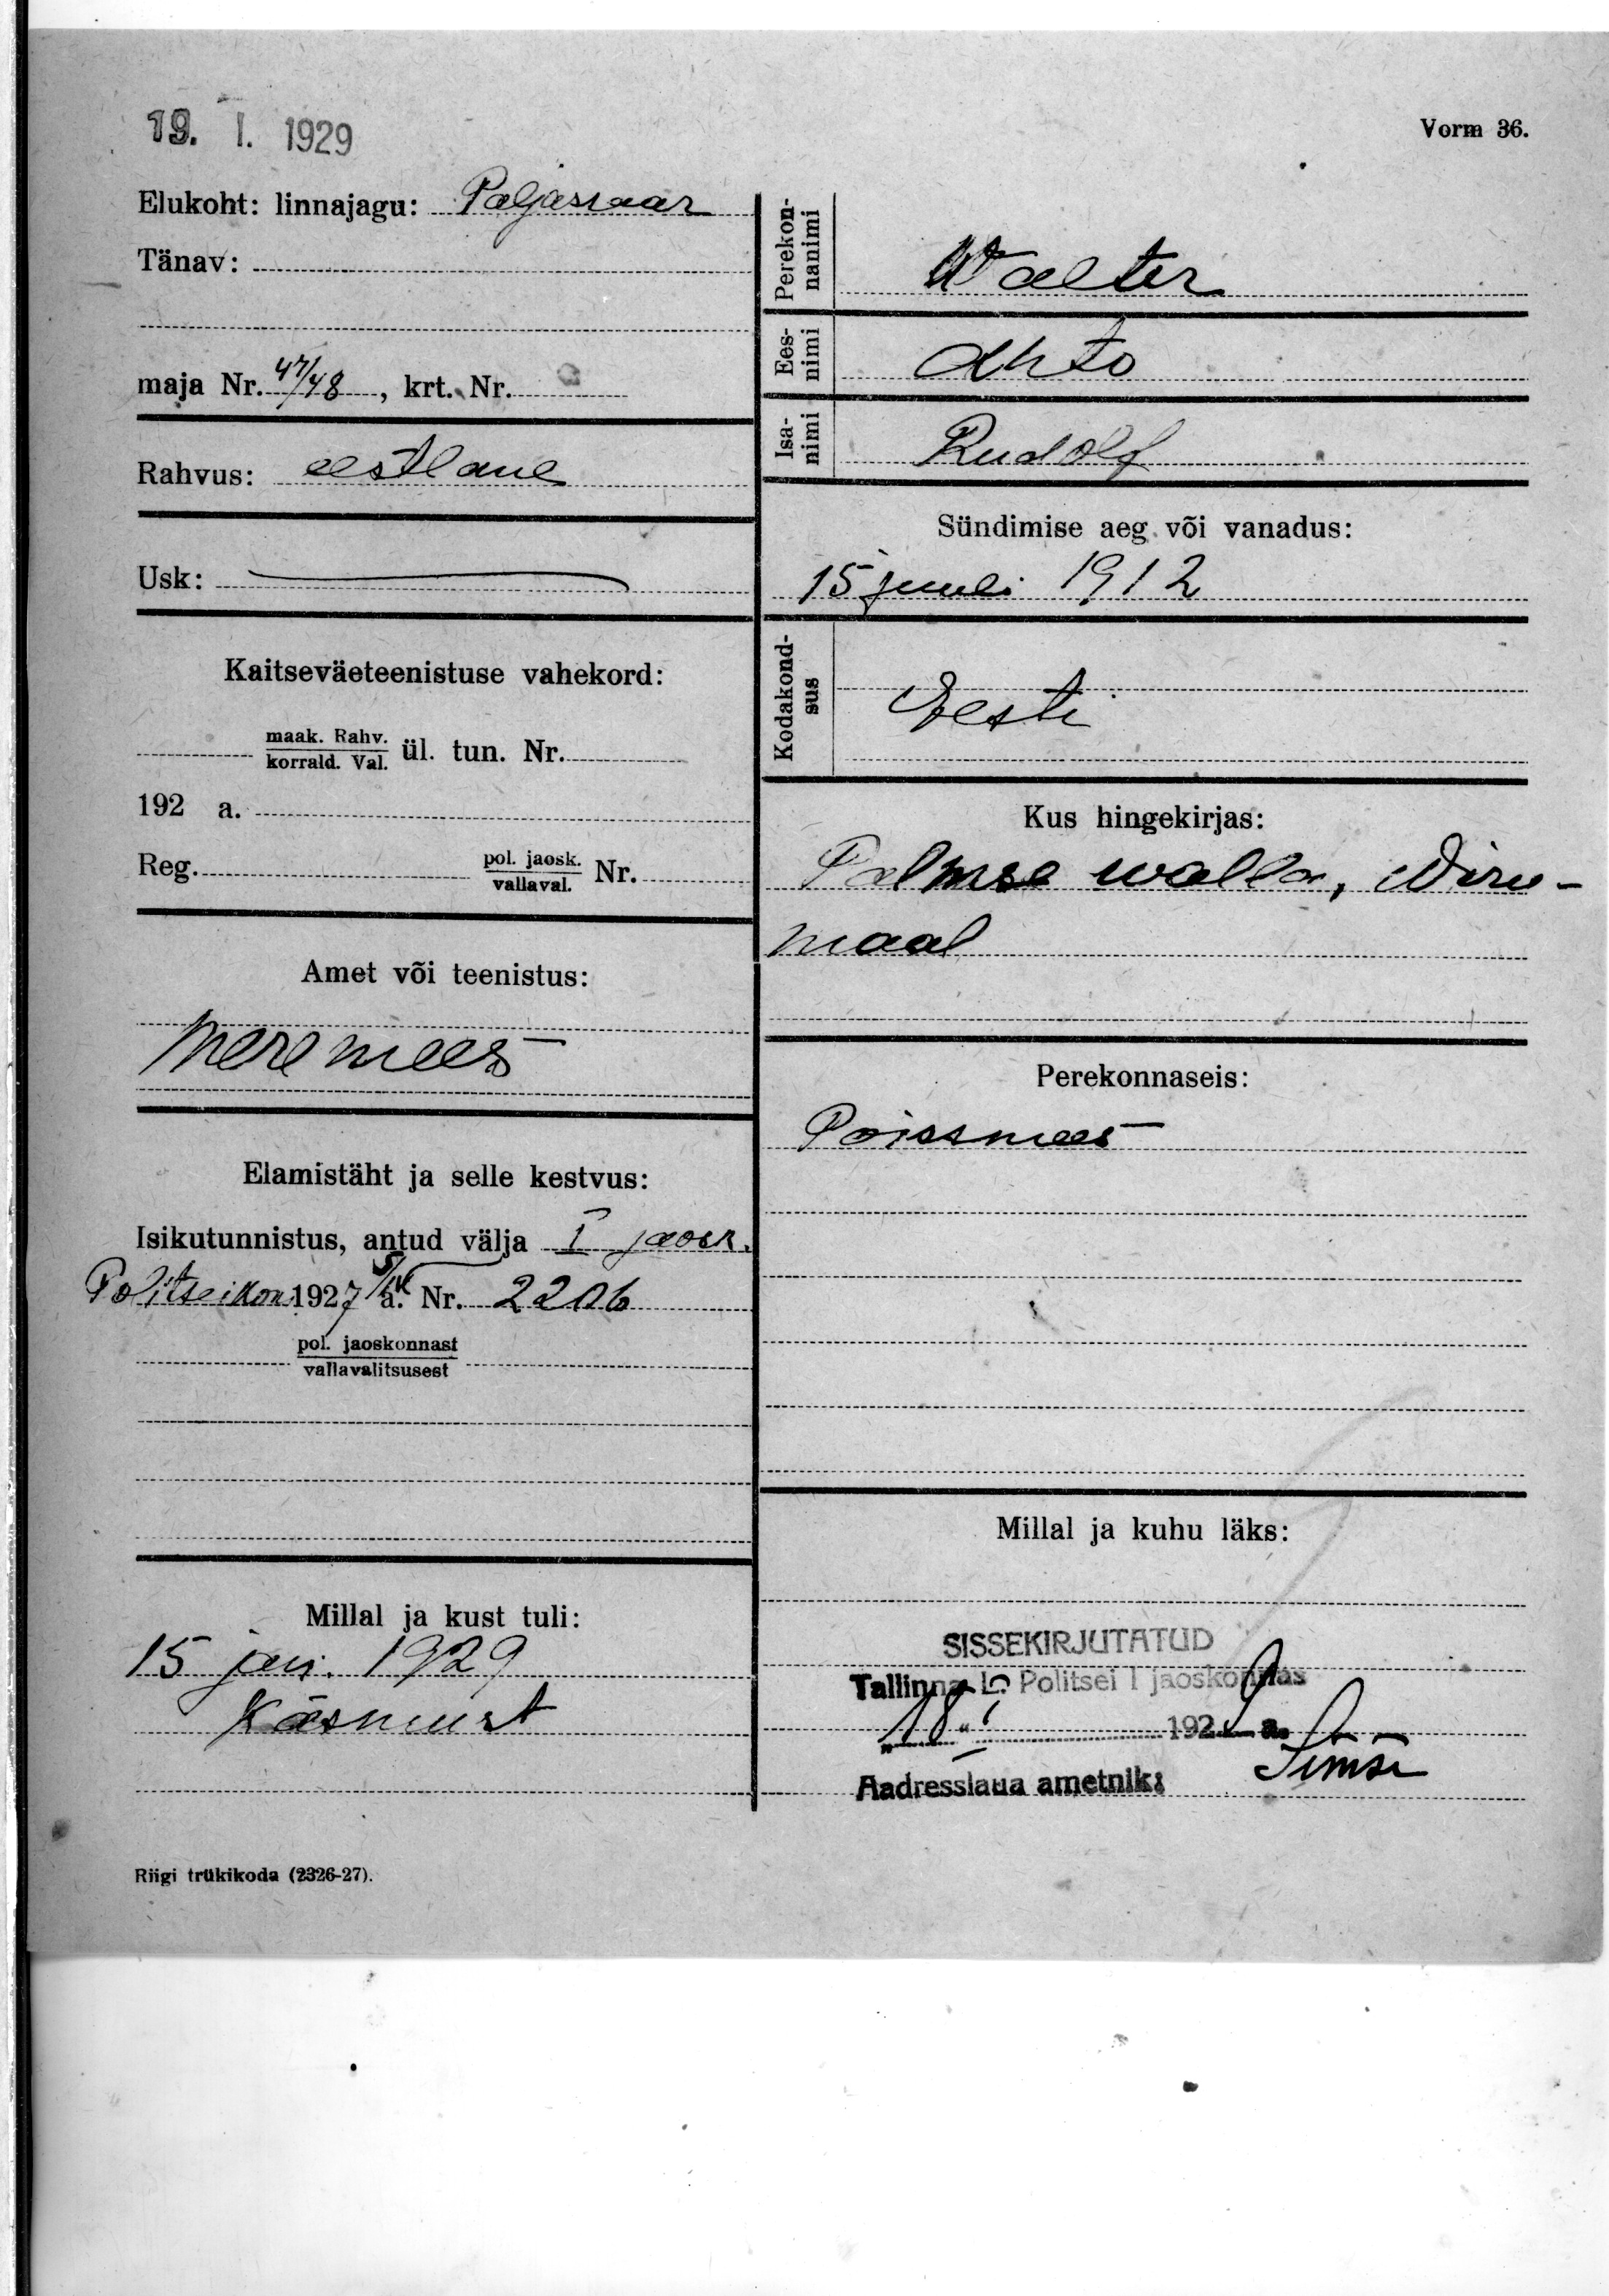 19. I. 1929
Vorm 36.
Elukoht: linnajagu: Paljassaar
Tänav:
maja Nr. 47/48, krt. Nr.
Rahvus: eestlane
Usk:
Kaitseväeteenistuse vahekord:
maak. Rahv.
korrald. Val. ül. tun. Nr.
192 a.
Reg. pol. jaosk.
vallaval. Nr.
Amet või teenistus:
Meremees
Elamistäht ja selle kestvus:
Isikutunnistus, antud välja I jaosk.
Politseikon 1927 5/IV a. Nr. 2206
pol. jaoskonnast
vallavalitsusest
Millal ja kust tuli:
15 jan. 1929
Käsmust
Riigi trükikoda (2326-27).
Perekon-
nanimi
Walter
Ees-
nimi
Ahto
Isa-
nimi
Rudolf
Sündimise aeg või vanadus:
15 juuli 1912
Kodakond-
sus
Eesti
Kus hingekirjas:
Palmse walla, Wiru-
maal
Perekonnaseis:
Poissmees
Millal ja kuhu läks:
SISSEKIRJUTATUD
Tallinna L. Politsei I jaoskonnas
"18" I 1929 a.
Aadresslaua ametnik: